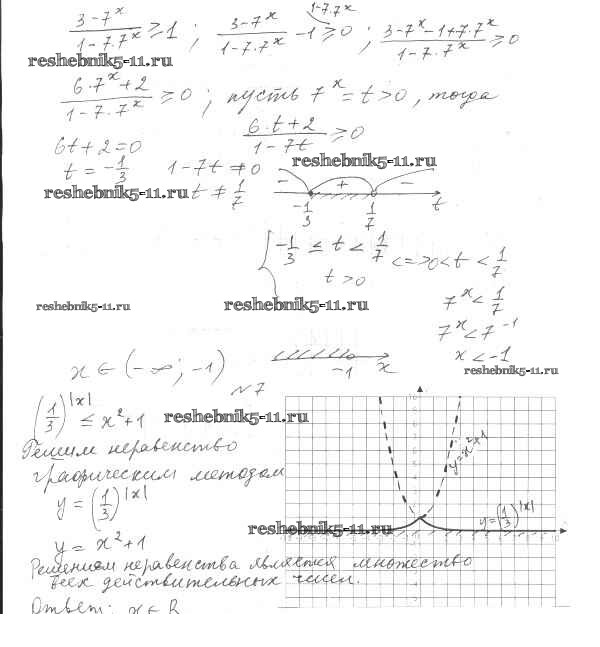 (3-7^x)/(1-7·7^x) ≥ 1 ; (3-7^x)/(1-7·7^x) - 1 ≥ 0 ; (3-7^x-1+7·7^x)/(1-7·7^x) ≥ 0
1-7·7^x
reshebnik5-11.ru
(6·7^x+2)/(1-7·7^x) ≥ 0 ; пусть 7^x = t > 0, тогда
6t+2=0 (6·t+2)/(1-7t) ≥ 0
t = -1/3 1-7t ≠ 0 reshebnik5-11.ru
reshebnik5-11.ru t ≠ 1/7
- + -
-1/3 1/7 t
{ -1/3 ≤ t < 1/7 <=> 0 < t < 1/7
t > 0
reshebnik5-11.ru reshebnik5-11.ru 7^x < 1/7
7^x < 7^-1
x < -1
x ∈ (-∞; -1) -1 x reshebnik5-11.ru
№7
(1/3)^|x| ≤ x²+1 reshebnik5-11.ru
Решим неравенство
графическим методом
y=x²+1
y = (1/3)^|x| y=(1/3)^|x|
reshebnik5-11.ru
y = x²+1
Решением неравенства является множество
всех действительных чисел.
Ответ: x ∈ R